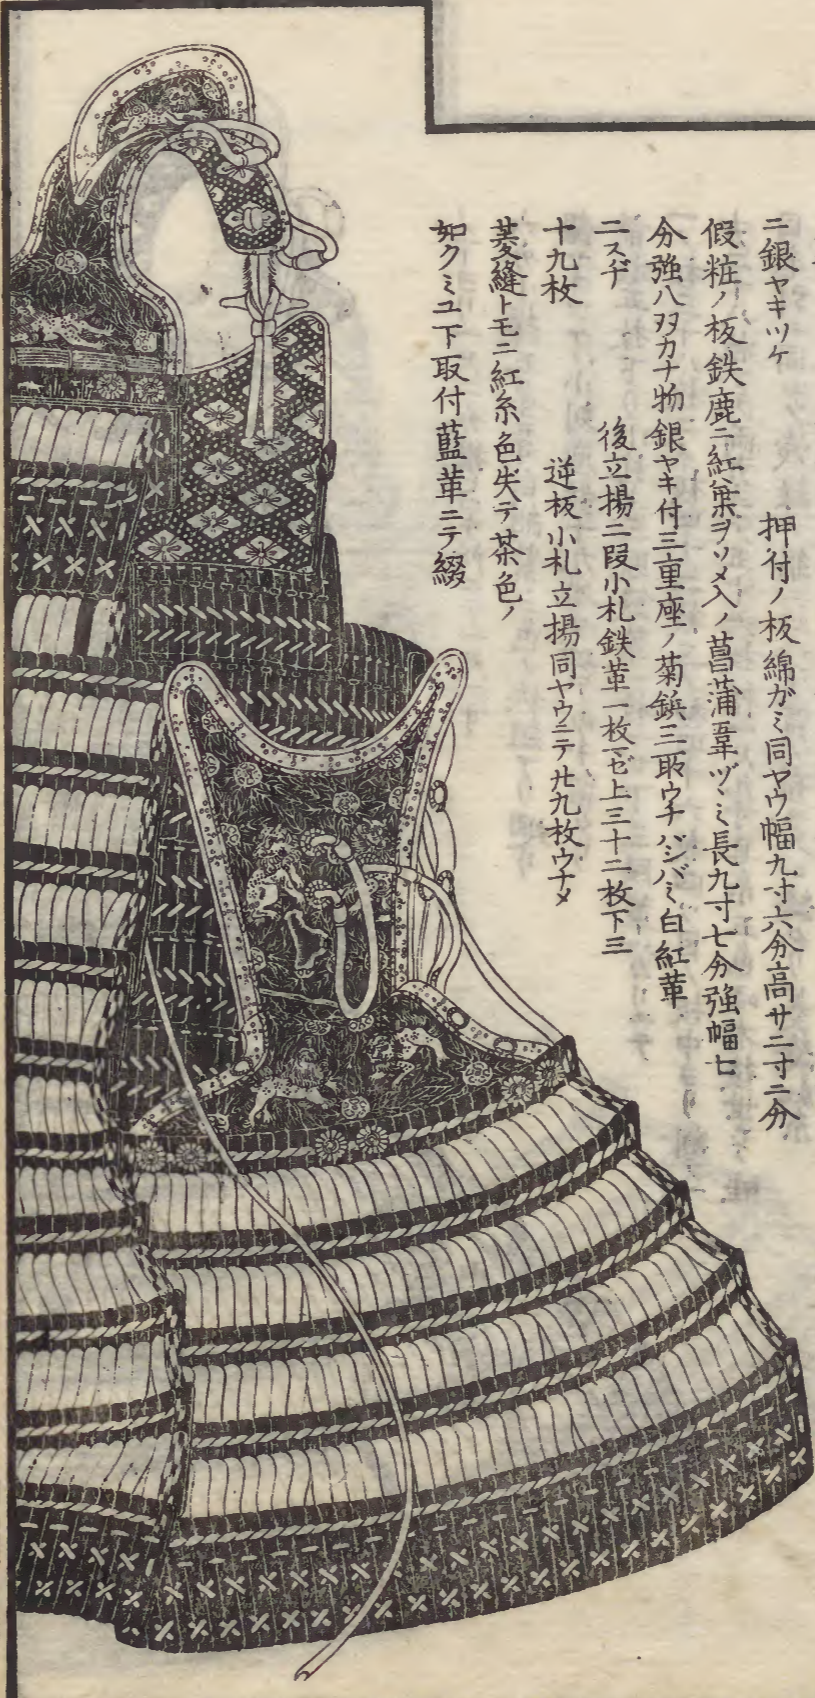 ニ銀ヤキツケ　押付ノ板綿ガミ同ヤウ幅九寸六分高サ二寸二分
假粧ノ板鉄鹿ニ紅葉ヲソメ入ノ菖蒲韋ヅヽミ長九寸七分強幅七
分強八双カナ物銀ヤキ付三重座ノ菊鋲三取ウチハシバミ白紅革
二スヂ　後立揚二段小札鉄革一枚マゼ上三十二枚下三
十九枚　逆板小札立揚同ヤウニテ廾九枚ウナメ
菱縫トモニ紅糸色失テ茶色ノ
如クミユ下取付藍革ニテ綴